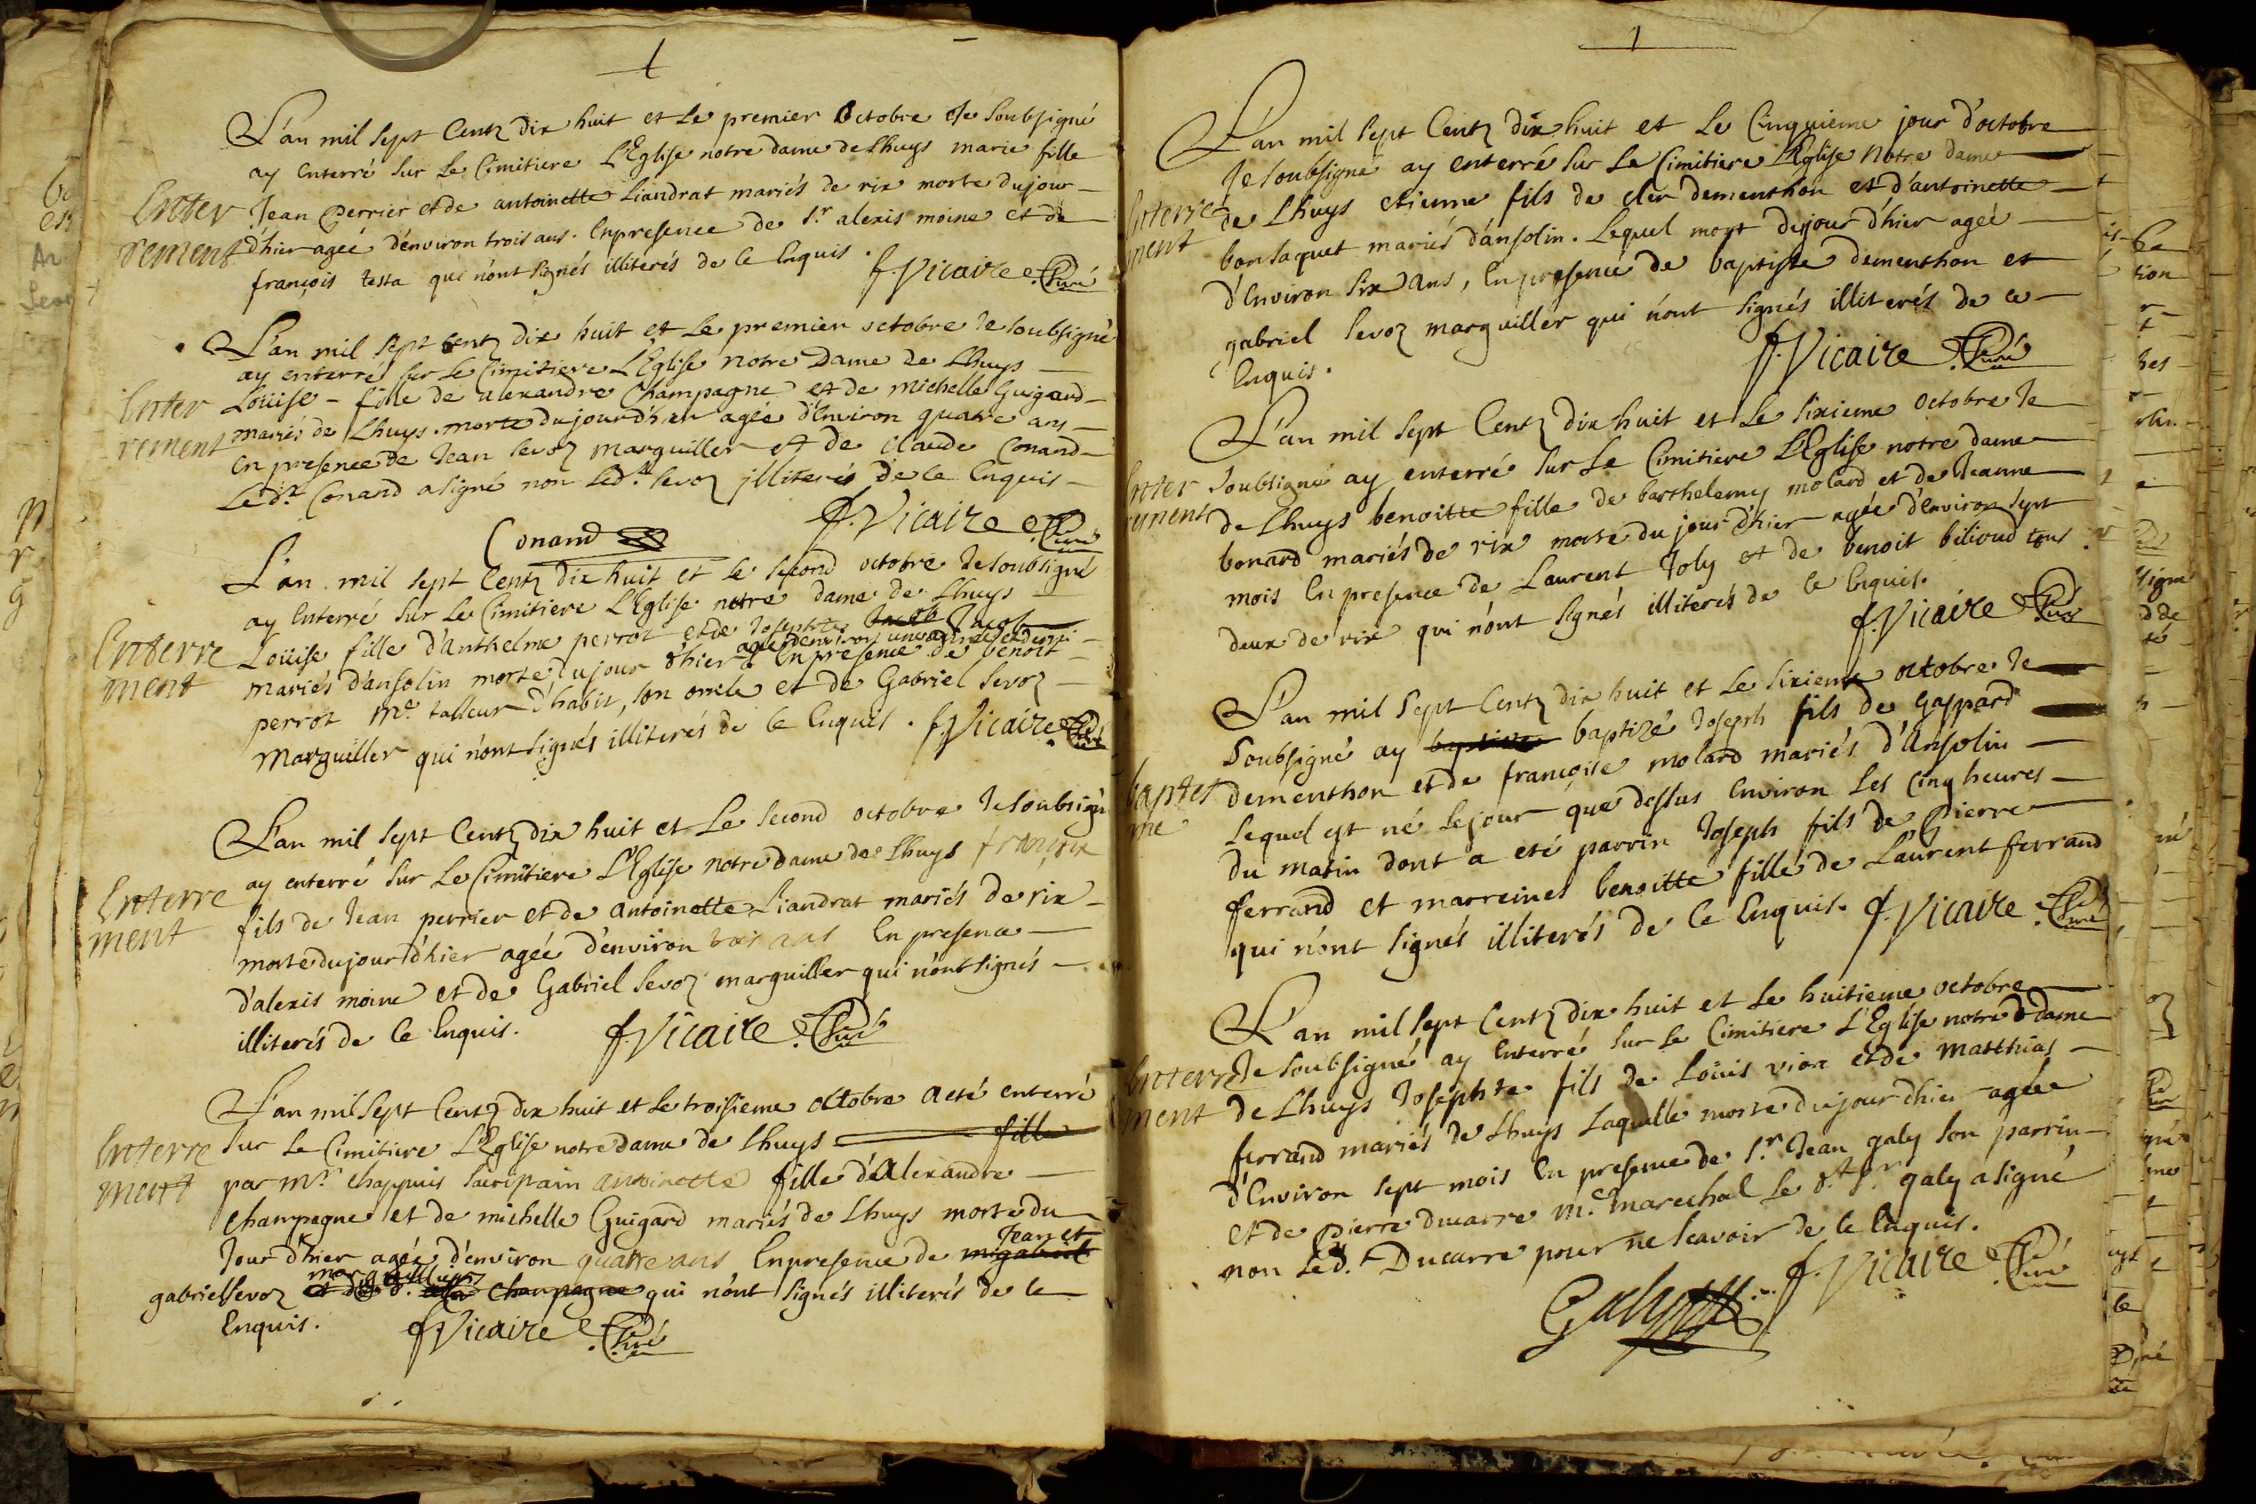 L'an mil sept Centz dix huit et Le premier Octobre Je Soubsigné
ay Enterré Sur Le Cimitiere L'Eglise notre dame de Lhuys marie fille
Enter
rement
Jean Perrier et de antoinette Liandrat mariés de rix morte du jour
d'hier ageé d'environ trois ans. En presence de Sr. alexis moine et de
françois testa qui n'ont Signés illiterés de Ce Enquis.
f. Vicaire Curé
L'an mil Sept Centz Dix huit et Le premier octobre Je Soubsigné
ay enterré Sur Le Cimitiere L'Eglise notre Dame de Lhuys
Enter
rement
Loüise fille de alexandre Champagne et de michelle Guigard
mariés de Lhuys. morte du jour d'hier agée d'Environ quatre ans
En presence de Jean Sevoz marguiller et de claude Conand
Led.t Conand a signé non Led.t Sevoz jlliterés de Ce Enquis
Conand
f. Vicaire Curé
L'an mil Sept Centz dix huit et Le Second octobre Je Soubsigné
ay Enterré Sur Le Cimitiere L'Eglise notre dame de Lhuys
Enterre
ment
Loüise fille d'anthelme perrot et de Josephte Jacob
agée d'environ un an et demi
mariés d'ansolin morte du jour d'hier En presence de benoit
perrot M.e talleur d'habit, son oncle et de Gabriel Sevoz
Marguiller qui n'ont Signés illiterés de Ce Enquis. f. Vicaire Curé
L'an mil Sept Centz dix huit et Le Second octobre Je Soubsigné
ay enterré Sur Le Cimitiere L'Eglise notre dame de Lhuys françoix
Enterre
ment
fils de Jean perrier et de antoinette Liandrat mariés de rix
morte du jour d'hier agée d'environ trois ans En presence
d'alexis moine et de Gabriel Sevoz marguiller qui n'ont signés
illiterés de Ce Enquis. f. Vicaire Curé
L'an mil Sept Centz dix huit et Le troisieme octobre a eté enterré
Sur Le Cimitiere L'Eglise notre dame de Lhuys fille
Enterre
ment
par Mr. Chappuis Sacripain antoinette fille d'alexandre
Champagne et de michelle Guigard mariés de Lhuys morte du
Jean et
Jour d'hier agée d'environ quatre ans En presence de
marguilliers
gabriel Sevoz Champagne qui n'ont Signés illiterés de Ce
Enquis. f. Vicaire Curé
1
L'an mil Sept Centz dix huit et Le Cinquieme jour d'octobre
Je Soubsigné ay enterré Sur Le Cimitiere L'Eglise Notre dame
Enterre
ment
de Lhuys etienne fils de cler dementhon et d'antoinette
bonSaquet mariés d'ansolin. Lequel mort du jour d'hier ageé
d'Environ Six ans, En presence de baptiste dementhon et
gabriel Sevoz marguiller qui n'ont Signés illiterés de ce
Enquis. f. Vicaire Curé
L'an mil Sept Centz dix huit et Le Sixieme Octobre Je
Soubsigné ay enterré Sur Le Cimitiere L'Eglise notre dame
Enter
rement
de Lhuys benoitte fille de barthelemy molard et de Jeanne
bonard mariés de rix morte du jour d'hier agée d'environ sept
mois En presence de Laurent Joly et de benoit bilioud tous
deux de rix qui n'ont Signés illiterés de Ce Enquis.
f. Vicaire Curé
L'an mil Sept Centz dix huit et Le Sixieme octobre Je
Soubsigné ay baptizé Joseph fils de Gaspard
baptes
me
dementhon et de françoise molard mariés d'Ansolin
Lequel est né Le jour que dessus Environ Les Cinq heures
du matin dont a eté parrin Joseph fils de Pierre
ferrand et marreines benoitte fille de Laurent ferrand
qui n'ont Signés illiterés de Ce Enquis. f. Vicaire Curé
L'an mil Sept Centz dix huit et Le huitieme octobre
Je Soubsigné ay Enterré Sur Le Cimitiere L'Eglise notre dame
Enterre
ment
de Lhuys Josephte fils de Loüis vion et de Matthias
ferrand mariés de Lhuys Laquelle morte du jour d'hier agée
d'Environ Sept mois En presence de Sr. Jean galy Son parrin
et de Pierre ducarre M.e marechal Le d.t Sr. galy a signé
non Led.t Ducarre pour ne Scavoir de Ce Enquis.
Galy f. Vicaire Curé